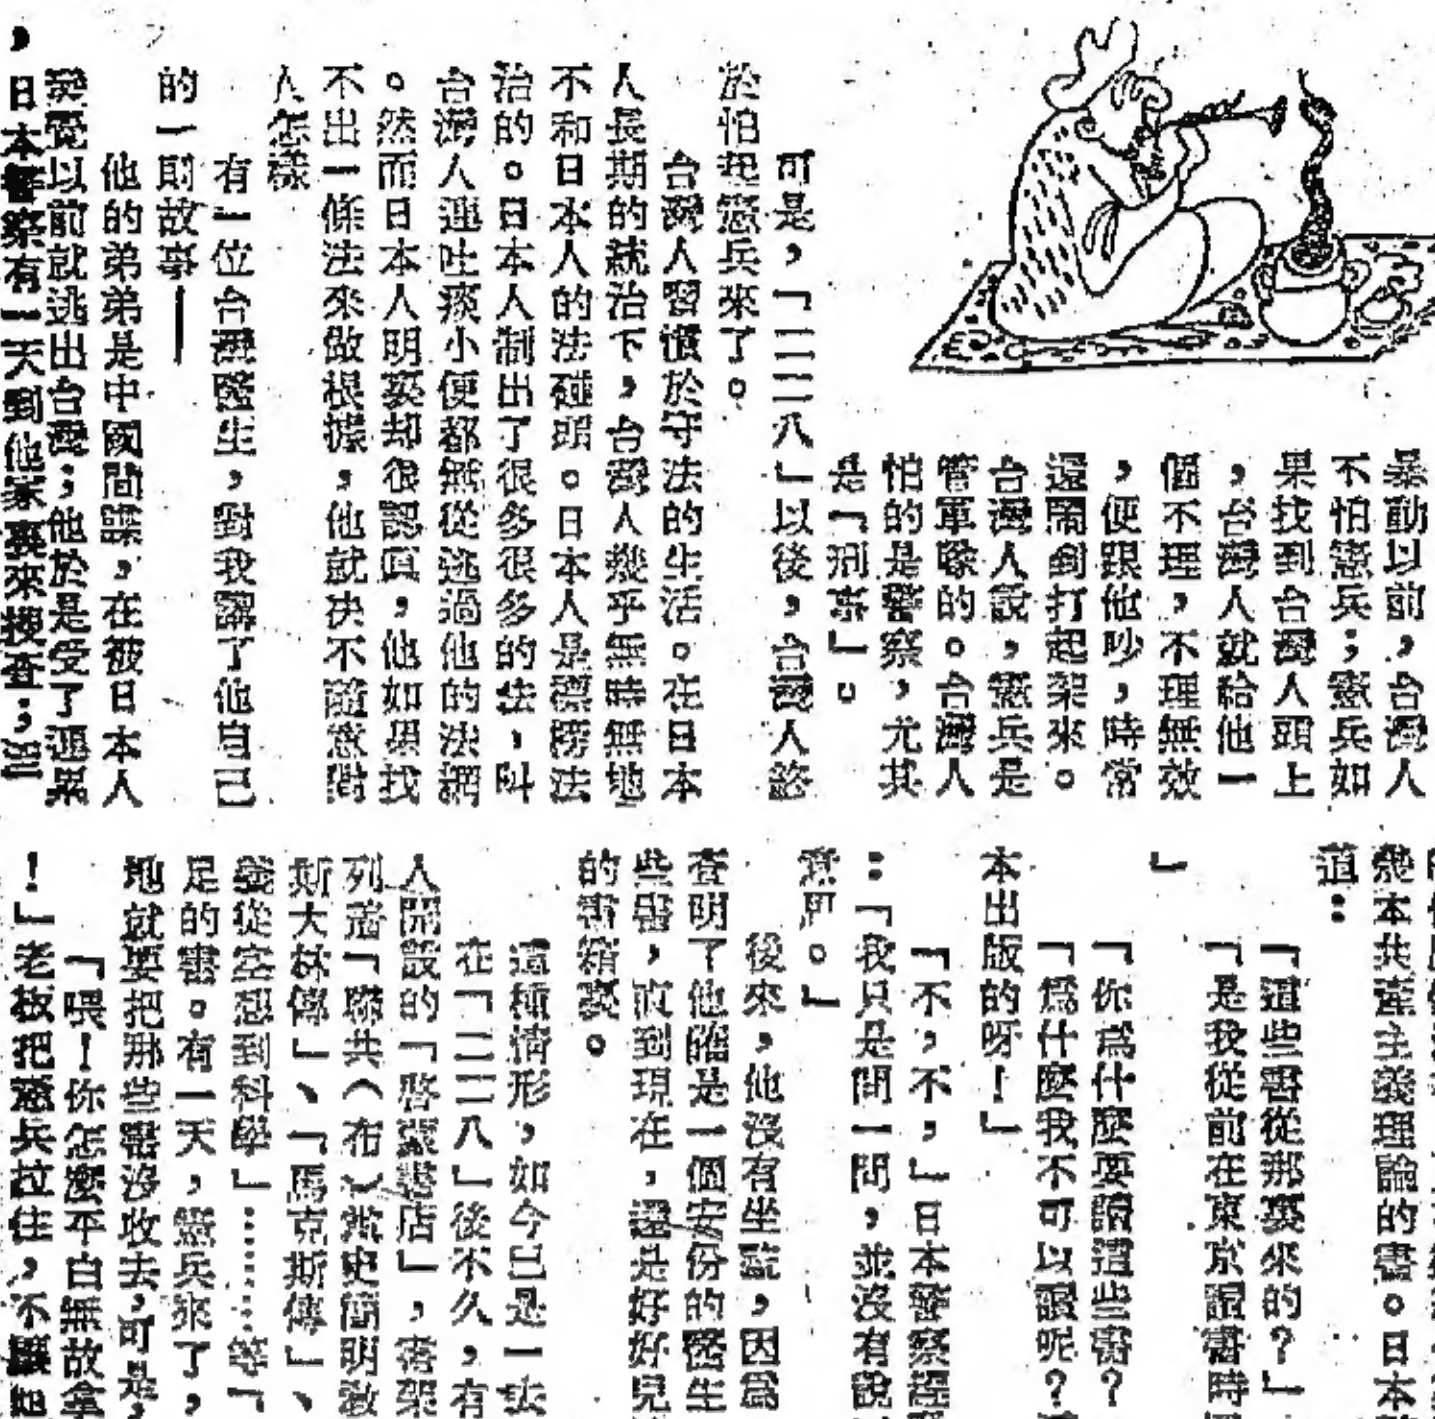 暴動以前，台灣人
不怕憲兵；憲兵如
果找到台灣人頭上
，台灣人就給他一
個不理，不理無效
，便跟他吵，時常
還鬧到打起架來。
台灣人說，憲兵是
管軍隊的。台灣人
怕的是警察，尤其
是「刑事」。
可是，「二二八」以後，台灣人終
於怕起憲兵來了。
台灣人習慣於守法的生活。在日本
人長期的統治下，台灣人幾乎無時無地
不和日本人的法碰頭。日本人是標榜法
治的。日本人制出了很多很多的法，叫
台灣人連吐痰小便都無從逃過他的法網
。然而日本人明裏却很認眞，他如果找
不出一條法來做根據，他就決不隨意對
人怎樣
有一位台灣醫生，對我講了他自己
的一則故事——
他的弟弟是中國間諜，在被日本人
發覺以前就逃出台灣；他於是受了連累
，日本警察有一天到他家裏來搜查；他
幾本共產主義理論的書。日本
道：
「這些書從那裏來的？」
「是我從前在東京讀書時
」
「你爲什麼要讀這些書？
「爲什麼我不可以讀呢？
本出版的呀！」
「不，不，」日本警察
：「我只是問一問，並沒有說
意思。」
後來，他沒有坐監，因爲
查明了他確是一個安份的醫生
些書，直到現在，還是好好兒
的書箱裏。
這種情形，如今已是一去
在「二二八」後不久，有
人開設的「啓蒙書店」，書架
列着「聯共（布）黨史簡明教
斯大林傳」、「馬克斯傳」、
義從空想到科學」………等「
足的書。有一天，憲兵來了，
地就要把那些書沒收去，可是，
「喂！你怎麼平白無故拿
！」老板把憲兵拉住，不讓他